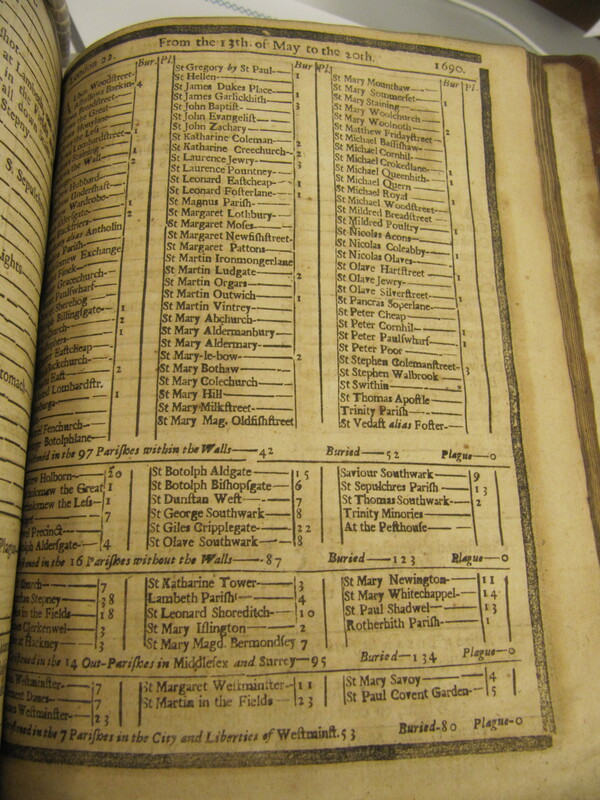 shot
at Lambeth
In the
all
Stepny
S. Sepulch
London 22. From the 13th. of May to the 20th. 1690.
Bur. Pl. Bur Pl. Bur Pl.
Woodstreet
Barkin 4
Lombardstreet 1
Staining 1
the Wall 2
Hubbard
Undershaft
Wardrobe 1
2
alias Antholin
Parish
Exchange
Finck
Gracechurch
Paulswharf
Sherehog
Billingsgate 2
1
Eastcheap
East 2
Lombardstr. 1
Fenchurch
Botolphlane
St Gregory by St Paul
St Hellen 1
St James Dukes Place
St James Garlickhith 1
St John Baptist 3
St John Evangelist
St John Zachary
St Katharine Coleman 2
St Katharine Creechurch 2
St Laurence Jewry 3
St Laurence Pountney
St Leonard Eastcheap 1
St Leonard Fosterlane 1
St Magnus Parish
St Margaret Lothbury
St Margaret Moses
St Margaret Newfishstreet
St Margaret Pattons
St Martin Ironmongerlane
St Martin Ludgate 2
St Martin Orgars
St Martin Outwich 1
St Martin Vintrey
St Mary Abchurch
St Mary Aldermanbury
St Mary Aldermary
St Mary-le-bow 2
St Mary Bothaw
St Mary Colechurch
St Mary Hill
St Mary Milkstreet
St Mary Mag. Oldfishstreet
St Mary Mounthaw
St Mary Sommerset 1
St Mary Staining
St Mary Woolchurch
St Mary Woolnoth 2
St Matthew Fridaystreet
St Michael Bassishaw
St Michael Cornhil
St Michael Crokedlane
St Michael Queenhith 1
St Michael Quern
St Michael Royal
St Michael Woodstreet
St Mildred Breadstreet
St Mildred Poultry
St Nicolas Acons 1
St Nicolas Coleabby
St Nicolas Olaves 1
St Olave Hartstreet
St Olave Jewry 1
St Olave Silverstreet
St Pancras Soperlane 1
St Peter Cheap
St Peter Cornhil 1
St Peter Paulswharf
St Peter Poor 1
St Stephen Colemanstreet
St Stephen Walbrook 3
St Swithin
St Thomas Apostle
Trinity Parish
St Vedast alias Foster
in the 97 Parishes within the Walls 42 Buried 52 Plague 0
Holborn 20
the Great 1
the Less 1
7
Precinct
Aldersgate 4
St Botolph Aldgate 15
St Botolph Bishopsgate 6
St Dunstan West 7
St George Southwark 8
St Giles Cripplegate 22
St Olave Southwark 18
Saviour Southwark 9
St Sepulchres Parish 13
St Thomas Southwark 2
Trinity Minories
At the Pesthouse
in the 16 Parishes without the Walls 87 Buried 123 Plague 0
church 7
Stepney 38
in the Fields 18
Clerkenwel 3
Hackney 3
St Katharine Tower 3
Lambeth Parish 4
St Leonard Shoreditch 10
St Mary Islington 2
St Mary Magd. Bermondsey 7
St Mary Newington 11
St Mary Whitechappel 14
St Paul Shadwel 13
Rotherhith Parish 1
in the 14 Out-Parishes in Middlesex and Surrey 95 Buried 134 Plague 0
Westminster 7
Danes 7
Westminster 23
St Margaret Westminster 11
St Martin in the Fields 23
St Mary Savoy 4
St Paul Covent Garden 5
in the 7 Parishes in the City and Liberties of Westminst. 53 Buried-80 Plague-0